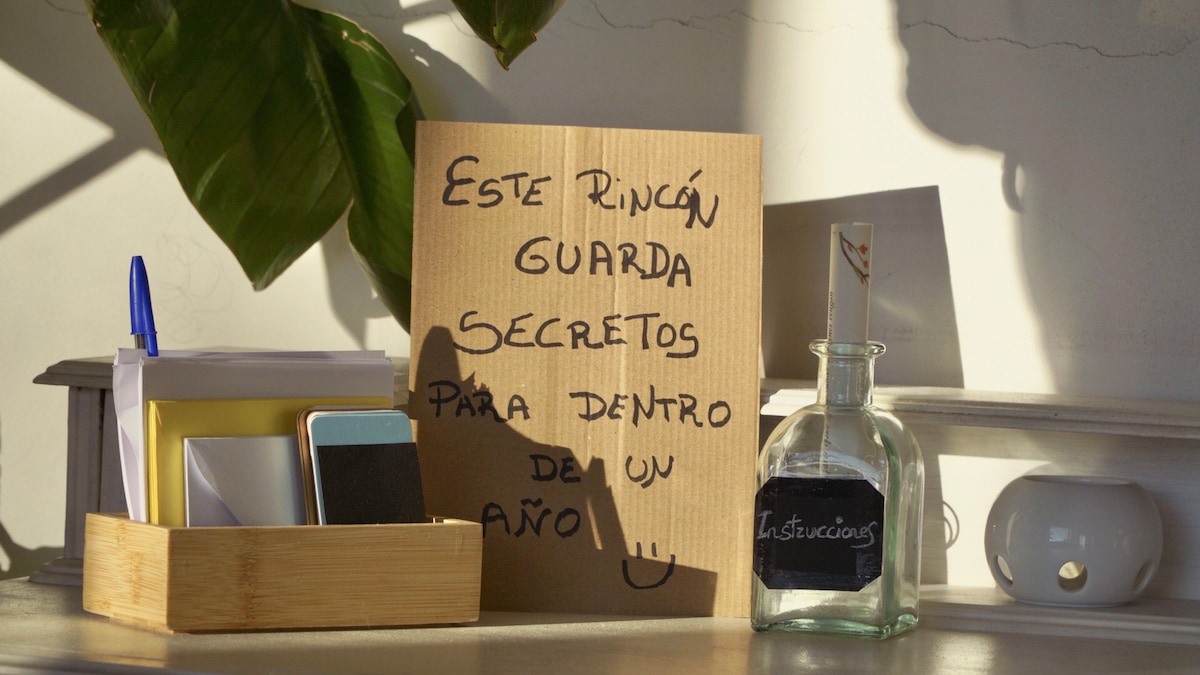 ESTE RINCÓN
GUARDA
SECRETOS
PARA DENTRO
DE UN
AÑO
Instrucciones